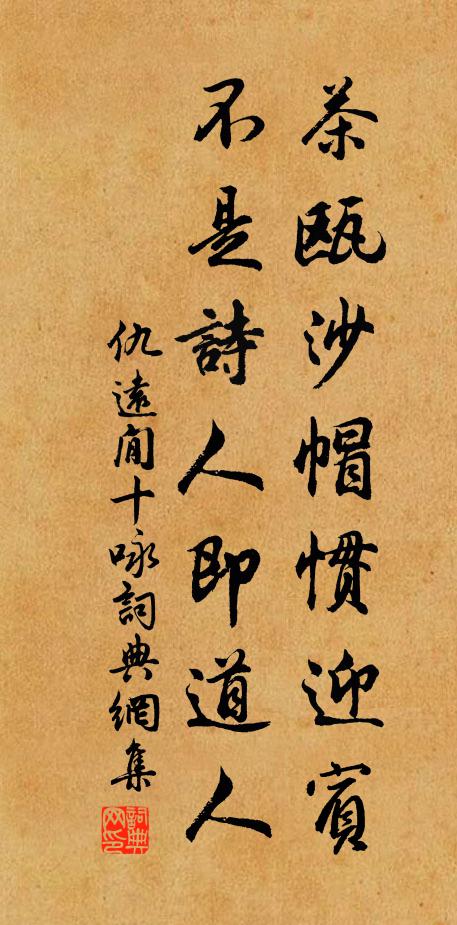 茶瓯沙帽惯迎賓
不是詩人即道人
仇遠閒十咏詞典網集
詞典网印